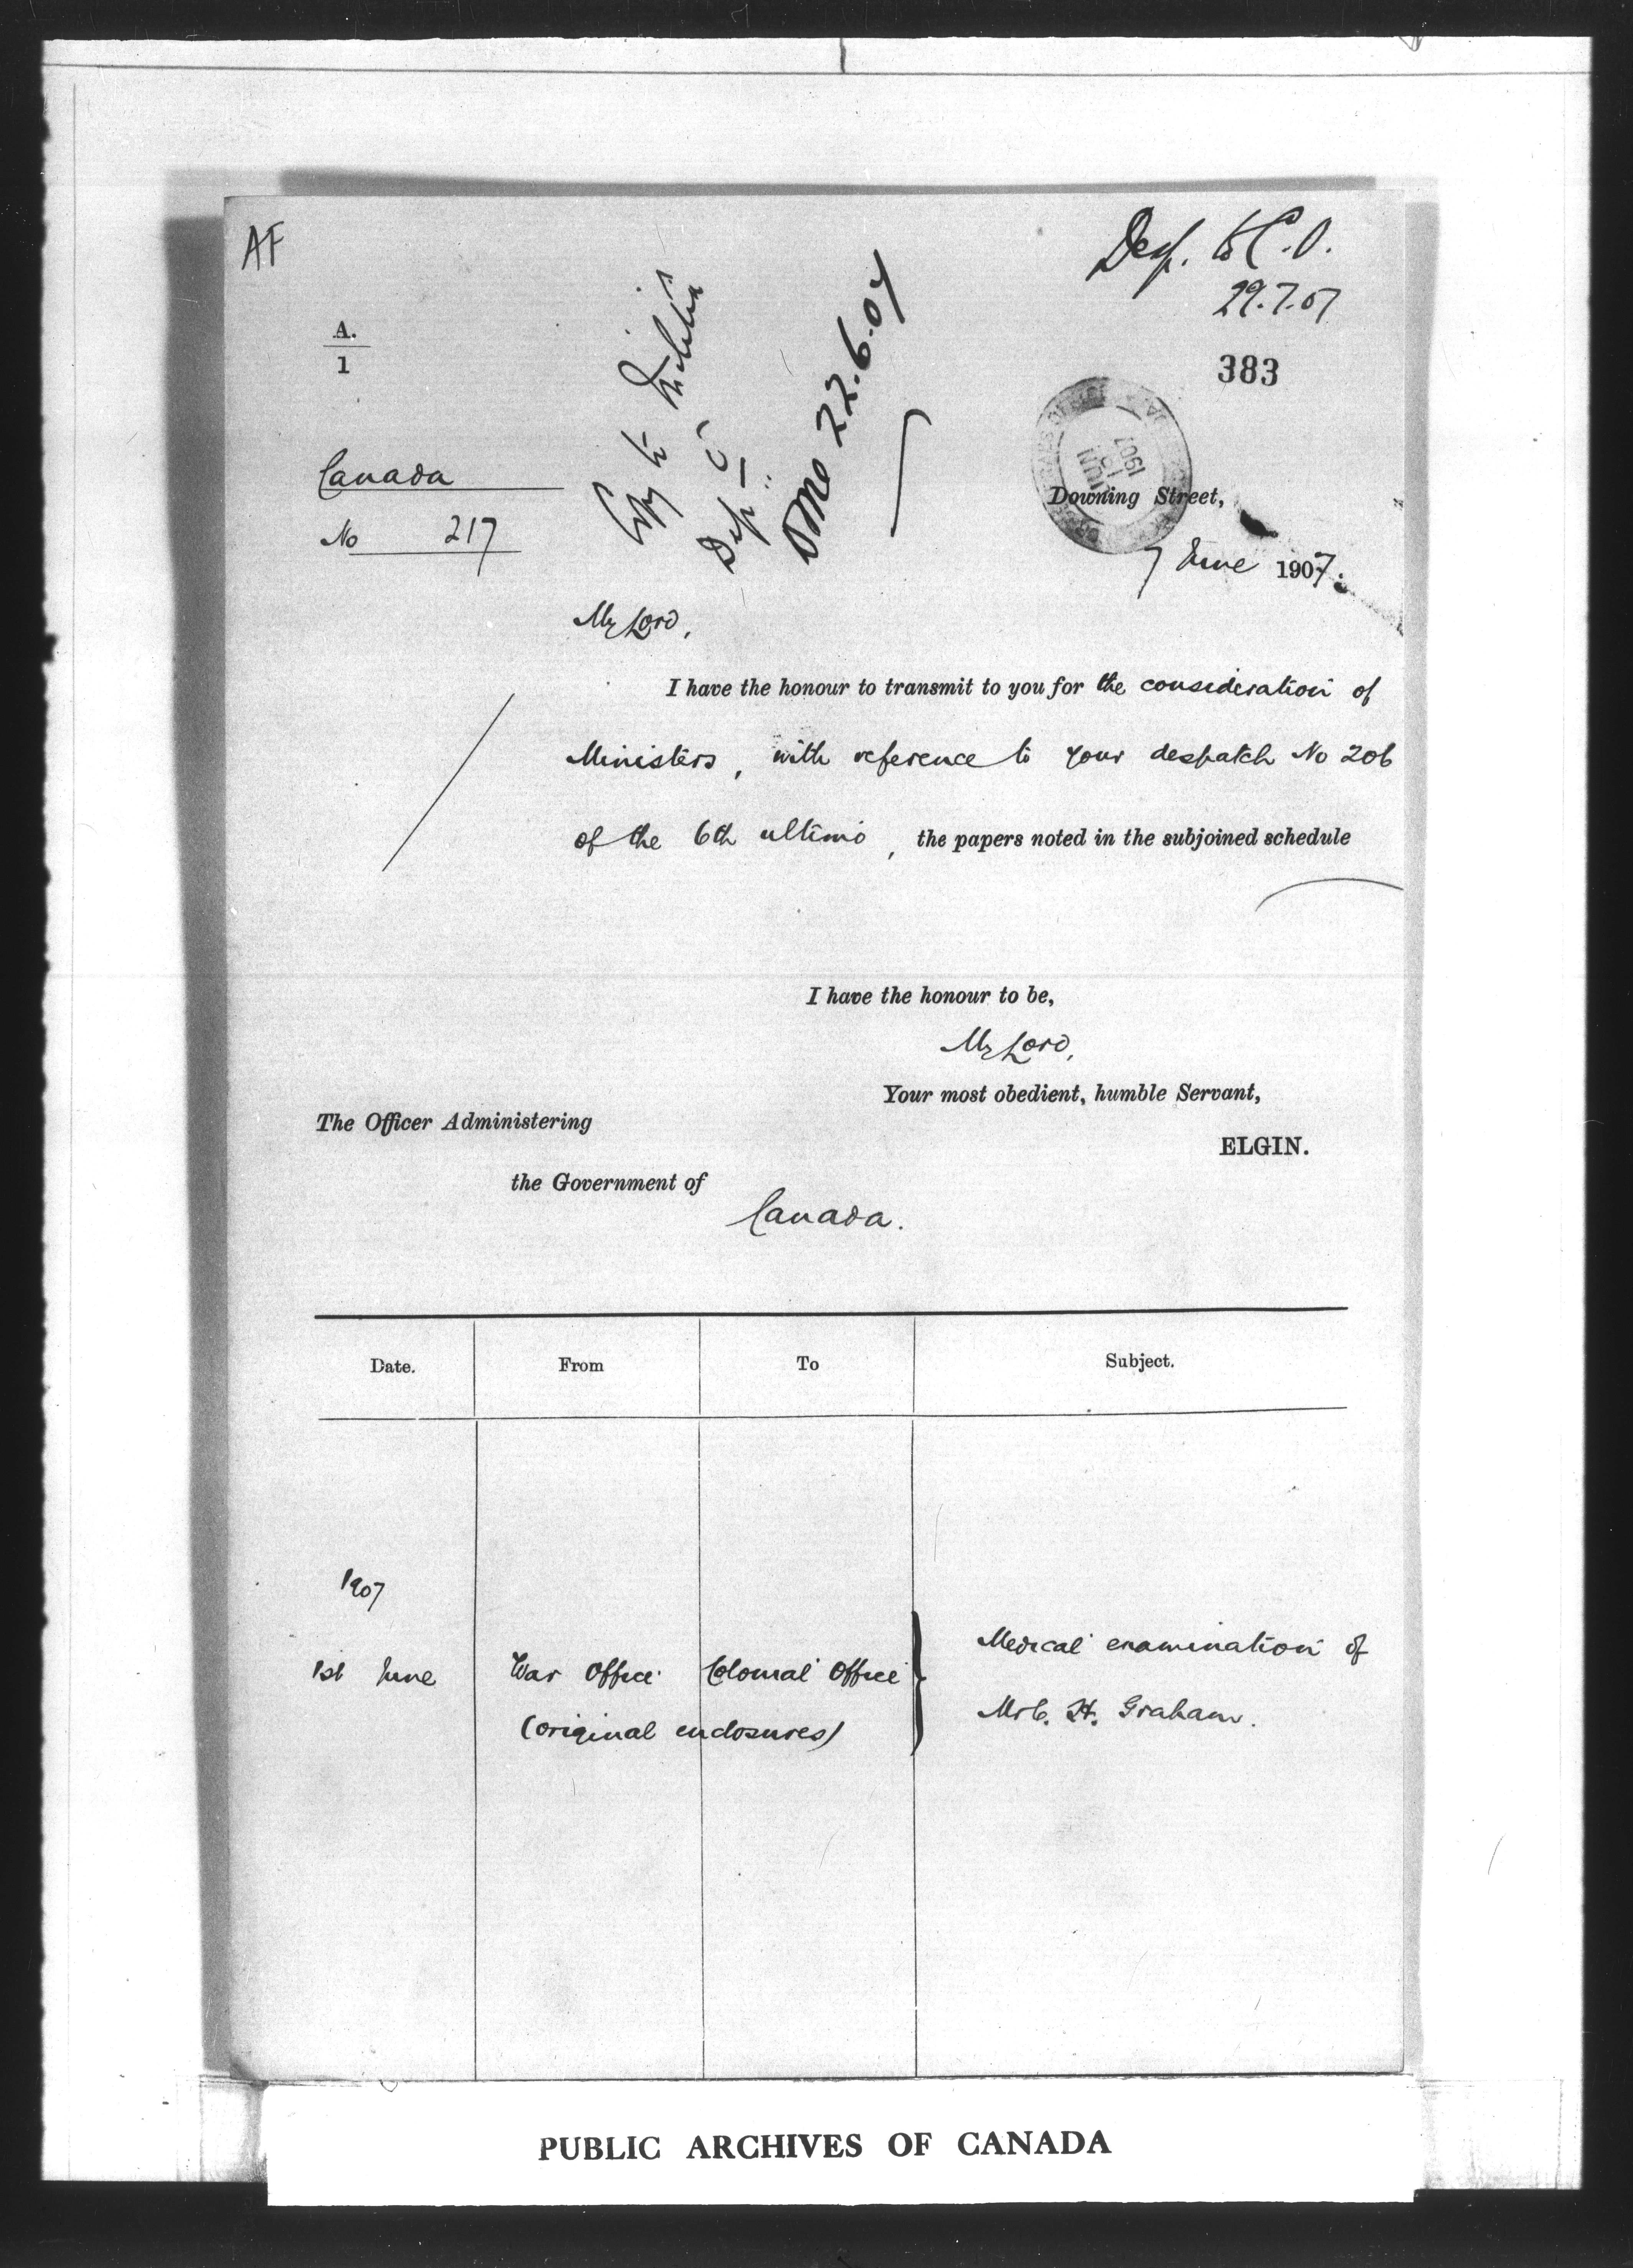 AF
Desp. to C.O.
29.7.07
A.
1
383
Copy to Militia
Dep
22.6.07
Canada
No 217
JUN
1907
Downing Street,
7 June 1907.
My Lord,
I have the honour to transmit to you for the consideration of
Ministers, with reference to your despatch No 206
of the 6th ultimo, the papers noted in the subjoined schedule
I have the honour to be,
My Lord,
Your most obedient, humble Servant,
ELGIN.
The Officer Administering
the Government of
Canada.
Date. From To Subject.
1907
1st June War Office Colonial Office Medical examination of
(original enclosures) H. Graham.
PUBLIC ARCHIVES OF CANADA